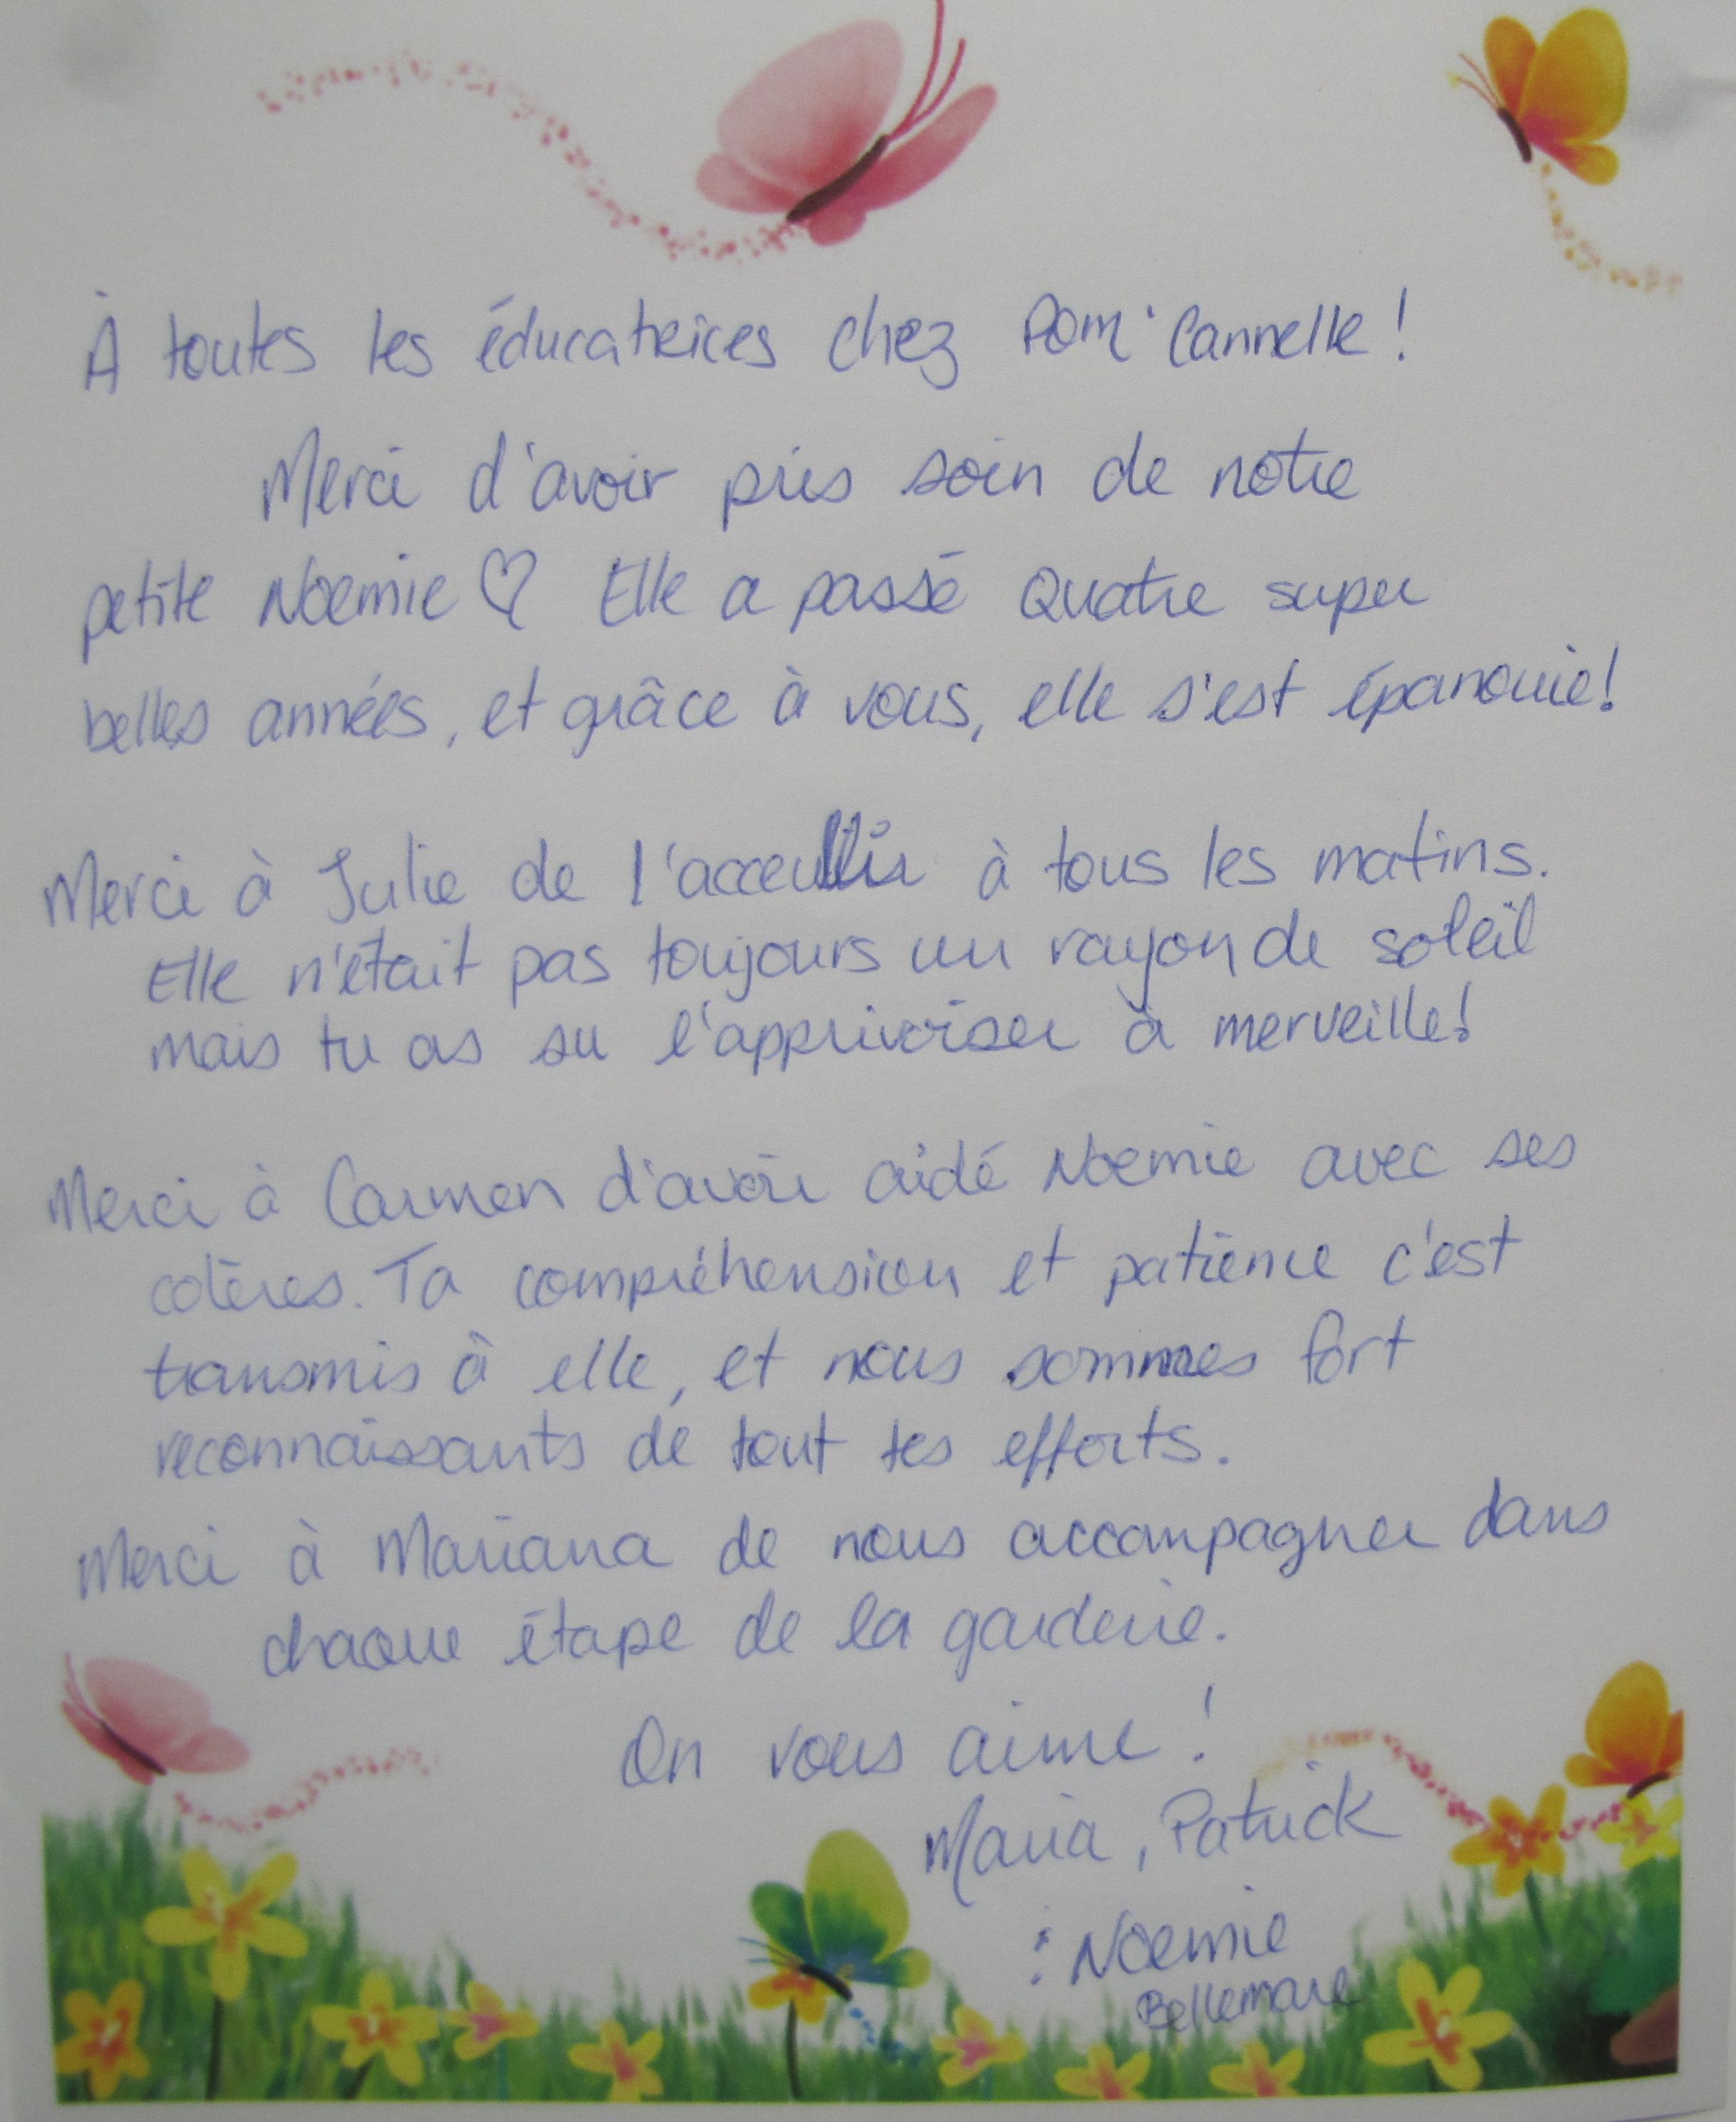 À toutes les éducatrices chez Pom'Cannelle!
Merci d'avoir pris soin de notre
petite Noemie ♡ Elle a passé Quatre super
belles années, et grâce à vous, elle s'est épanouie!
Merci à Julie de l'acceullir à tous les matins.
Elle n'était pas toujours un rayon de soleil
mais tu as su l'apprivoiser à merveille!
Merci à Carmen d'avoir aidé Noemie avec ses
colères. Ta compréhension et patience c'est
transmis à elle, et nous sommes fort
reconnaissants de tout tes efforts.
Merci à Mariana de nous accompagner dans
chaque étape de la garderie.
On vous aime!
Maria, Patrick
: Noemie
Bellemare